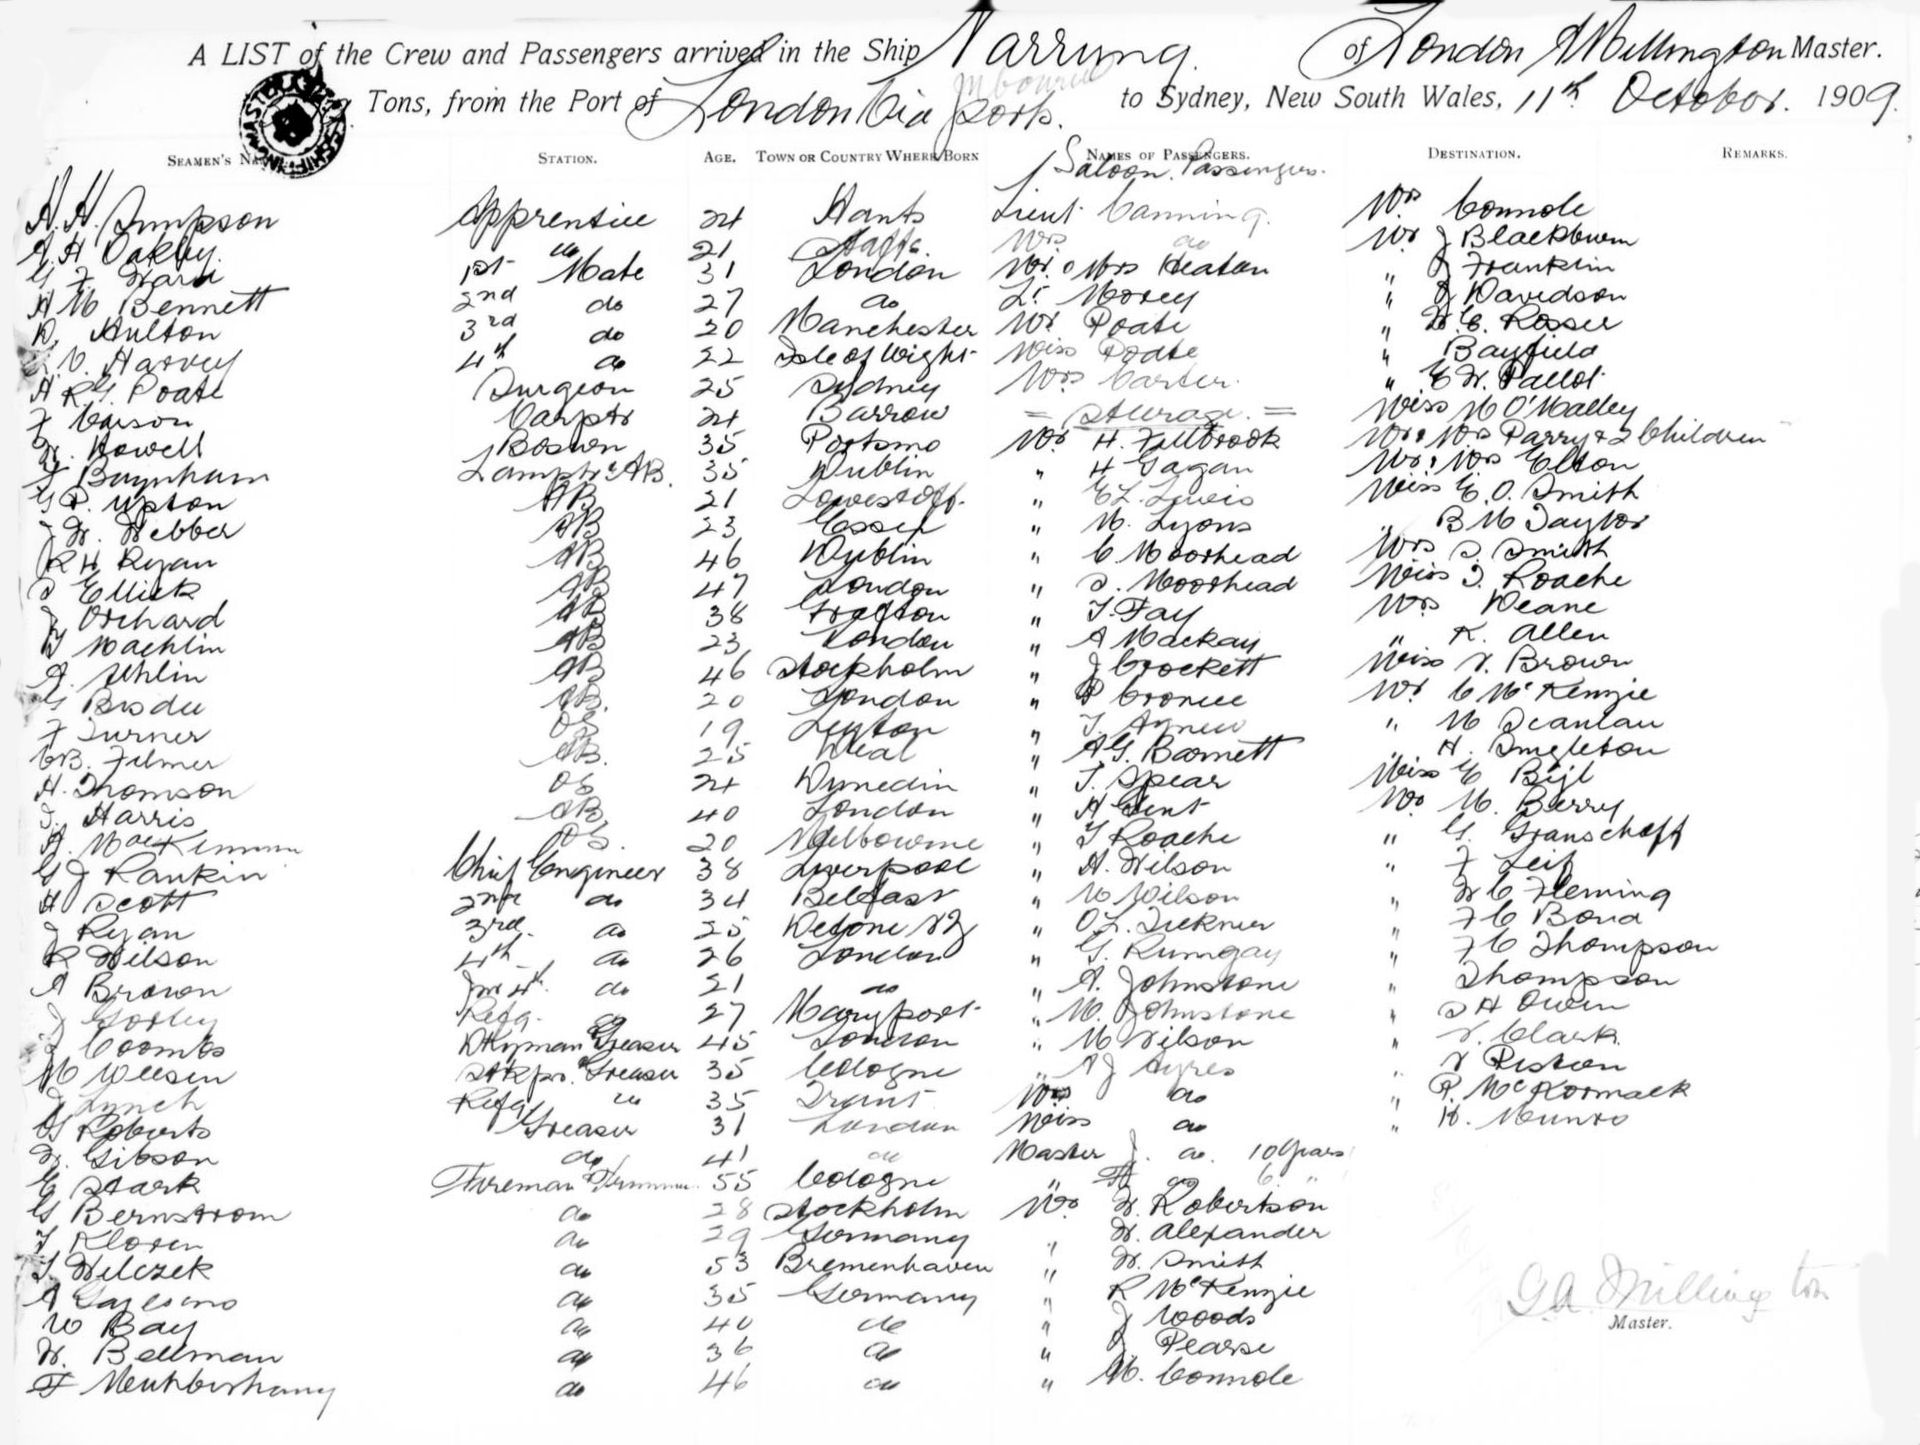 A LIST of the Crew and Passengers arrived in the Ship Narrung. of London Millington Master.
Tons, from the Port of London Via ports. to Sydney, New South Wales, 11th October. 1909.
SEAMEN'S STATION. AGE. TOWN OR COUNTRY WHERE BORN NAMES OF PASSENGERS. DESTINATION. REMARKS.
Saloon Passengers.
H. H. Simpson Apprentice 24 Hants Lieut Canning. Mrs Connole
A H Oakley. do 21 Mrs do Mr J Blackburn
G F Ward 1st Mate 31 London Mr & Mrs Heaton " J Franklin
A M Bennett 2nd do 27 do Lt Morey " J Davidson
Hulton 3rd do 20 Manchester Mr Poate " Rosser
V. Harvey 4th do 22 Isle of Wight Miss Poate " Bayfield
H R G Poate Surgeon 25 Sydney Mrs Carter. " E W. Pallot
F Carson Carptr 24 Barrow = Steerage. = Miss M O'Malley
W. Howell Boswn 35 Portsmo Mr H. Fullbrook Mr & Mrs Parry & 2 Children
Baynham Lamptr & AB. 35 Dublin " H Gagan Mr & Mrs Elton
G P. Upton AB 21 Lowestoft. " E L. Lewis Miss E. O. Smith
J W. Webber AB 23 Essex " M. Lyons " B M Taylor
R H Ryan AB 46 Dublin " C Moorhead Mrs S Smith
S Ellick AB 47 London " S. Moorhead Miss J. Roache
J Orchard AB 38 Grafton " T. Fay Mrs Deane
Machlin AB 23 London " A Mackay " K. Allen
A. Ahlin AB 46 Stockholm " J Crockett Miss V. Brown
G Bisdee AB. 20 London " P Cronee Mr C McKenzie
F Turner OS 19 Leyton " T. Agnew " M Scanlan
C B. Filmer AB. 25 Deal " A G. Barnett " H. Singleton
H. Thomson OS 24 Dunedin " T. Spear Miss E Bijl
J. Harris AB. 40 London " H Gent Mr M. Berry
A. OS. 20 Melbourne " T Roache " G. Granschoff
G J Rankin Chief Engineer 38 Liverpool " A. Wilson " F Leif
H Scott 2nd do 34 Belfast " W Wilson " W C Fleming
J Ryan 3rd. do 25 Petone NZ " O L. Tickner " F C Bond
R Wilson 4th do 26 London " G. Rumgay " F C Thompson
A Brown Jnr 4th. do 21 do " A. Johnstone " Thompson
J Gorley Refg. do 27 Maryport " M. Johnstone " S H Owen
Coombs Dkyman & Greaser 45 London " M Wilson " V. Clark.
M Weesen Stkpr. & Greaser 35 Cologne " A J Ayres " V Piston
J Lynch Refg " 35 Mrs do " P. McKormack
G Roberts Greaser 31 London Miss do " H. Munro
W. Gibson do 41 do Master J. do. 10 years
E Stark Fireman & Trimmer 55 Cologne " do 6 "
G Bernstrom do 28 Stockholm Mr W. Robertson
T Kloren do 29 Germany " W. Alexander
T. Welczek do 53 Bremenhaven " W. Smith
A do 35 Germany " R McKenzie
W Bay do 40 do " J Woods
W. Bellman do 36 do " J. Pearse
F do 46 do " M. Connole
G A. Millington
Master.